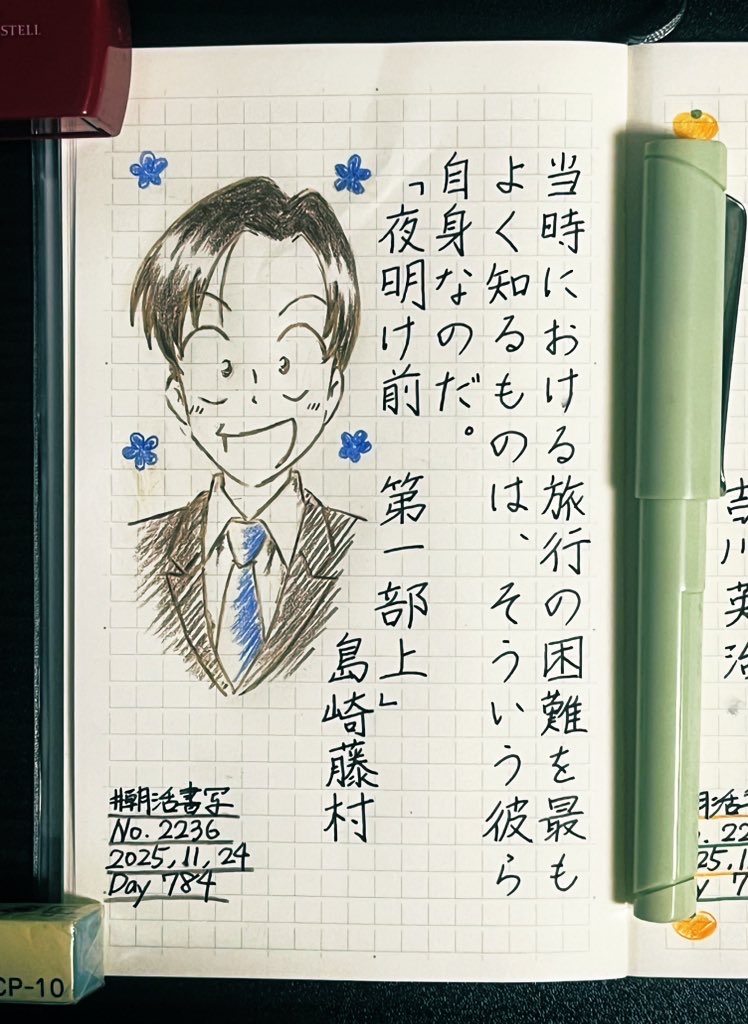 当時における旅行の困難を最も
よく知るものは、そういう彼ら
自身なのだ。
「夜明け前 第一部上」
島崎藤村
#朝活書写
No. 2236
2025,11,24
Day 784
吉川英治
STELL
CP-10